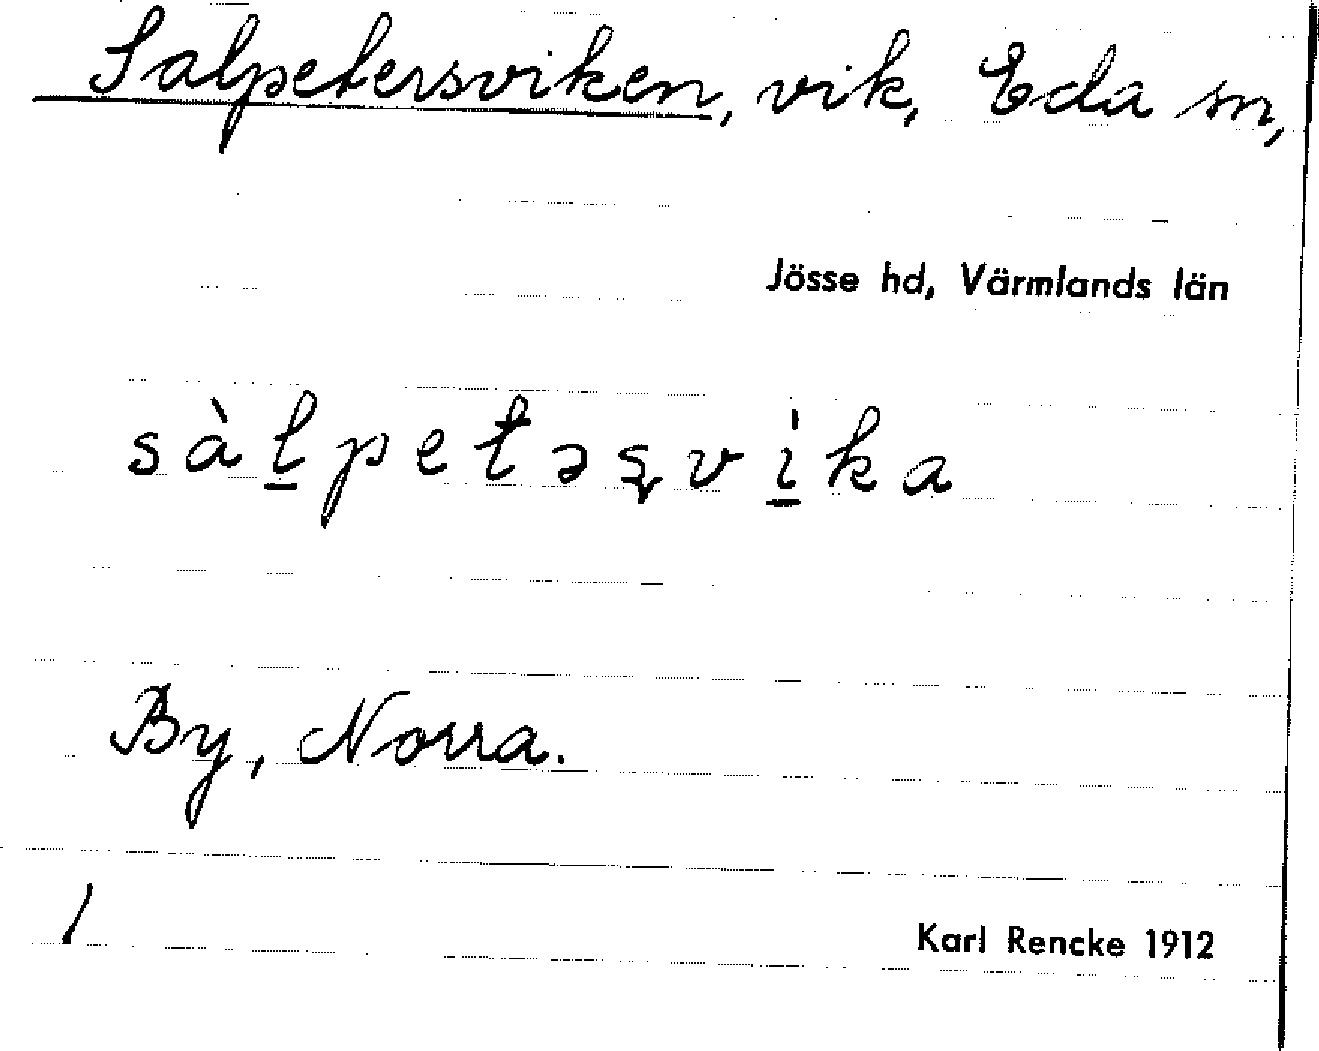 Salpetersviken, vik, Eda sn,
Jösse hd, Värmlands län
sàl̲petəʂvi̲̍ka
By, Norra.
1
Karl Rencke 1912